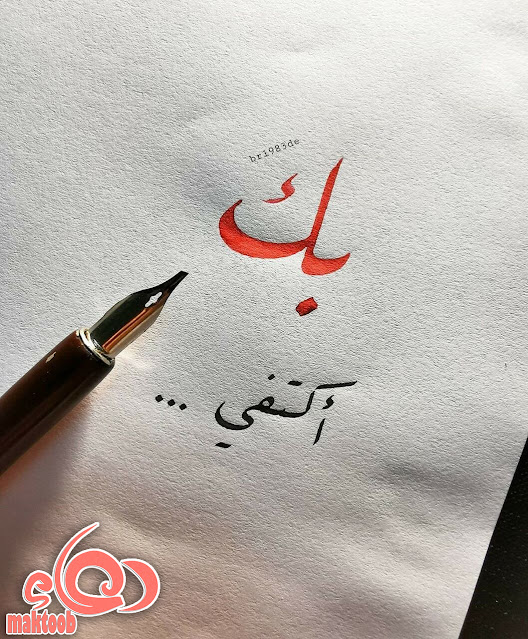 br1983de
بك
أكتفي ...
دعاء
maktoob